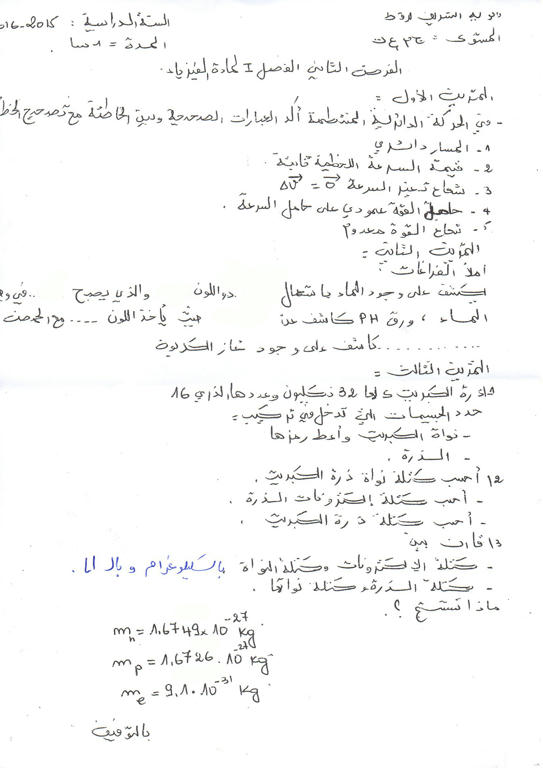 السنة الدراسية : 2015-016
المستوى : ج م ع ت
المدة = 1 سا
الفرض الثاني الفصل I لمادة الفيزياء.
التمرين الأول :
- في الحركة الدائرية المنتظمة أكد العبارات الصحيحة وبين الخاطئة مع تصحيح الخطأ
1- المسار دائري
2- قيمة السرعة اللحظية ثابتة.
3- شعاع تغير السرعة ΔV = 0
4- حامل القوة عمودي على حامل السرعة.
5- شعاع القوة معدوم
التمرين الثاني :
املأ الفراغات :
نكشف على وجود الماء باستعمال ذو اللون والذي يصبح .. في وجود
الماء ، ورق PH كاشف عن حيث يأخذ اللون .... مع الحمض
........... كاشف على وجود غاز الكربون
التمرين الثالث :
ذرة الكبريت S لها 32 نكليون وعددها الذري 16
حدد الجسيمات التي تدخل في تركيب :
- نواة الكبريت وأعط رمزها
- الذرة .
2) أحسب كتلة نواة ذرة الكبريت.
- أحسب كتلة إلكترونات الذرة .
- أحسب كتلة ذرة الكبريت .
3) قارن بين
- كتلة الإلكترونات وكتلة النواة بالكيلوغرام و بالـ u.m.a
- كتلة الذرة و كتلة نواتها .
ماذا تستنتج ؟.
mn = 1,6749 x 10^-27 kg
mp = 1,6726 . 10^-27 kg
me = 9,1 . 10^-31 kg
بالتوفيق